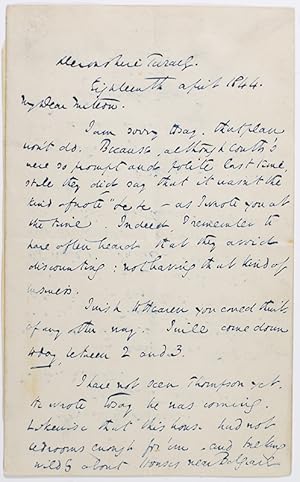 Devonshire Terrace.
Eighteenth April 1844.
My Dear Mitton.
I am sorry to say, that plan
won't do. Because, although Coutts's
were so prompt and polite last time,
still they did say that it wasn't the
kind of note &c &c - as I wrote you at
the time. Indeed, I remember to
have often heard that they avoid
discounting, not having that kind of
business.
I wish to Heaven you could think
of any other way. I will come down
today, between 2 and 3.
I have not seen Thompson yet.
He wrote today he was coming.
Likewise that this house had not
bedrooms enough for 'em - and talking
wildly about Houses near